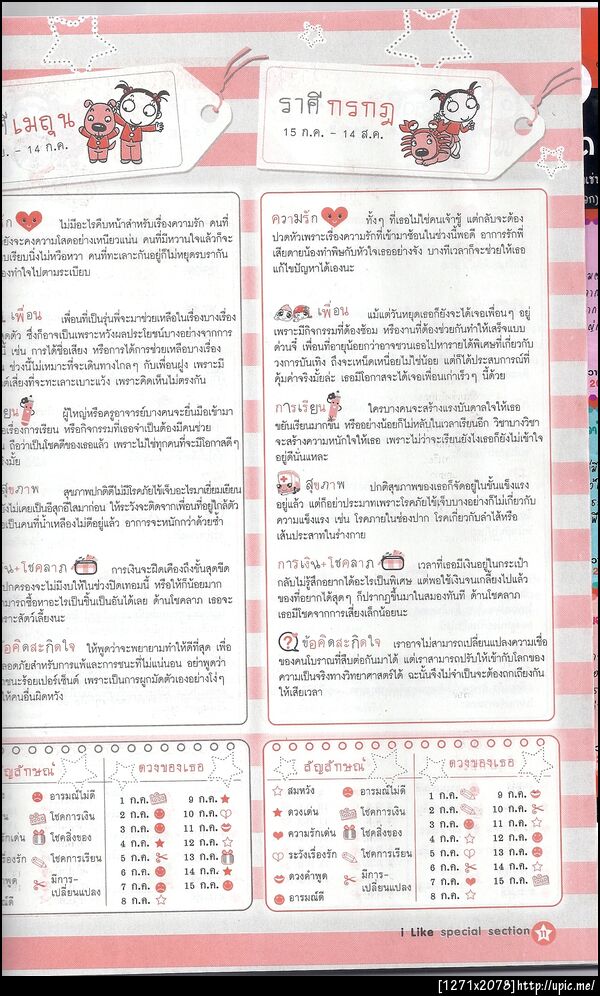 เมถุน
- 14 ก.ค.
ไม่มีอะไรคืบหน้าสำหรับเรื่องความรัก คนที่
ยังจะคงความโสดอย่างเหนียวแน่น คนที่มีหวานใจแล้วก็จะ
บเรียบนิ่งไม่หวือหวา คนที่ทะเลาะกันอยู่ก็ไม่หยุดรบรากัน
องทำใจไปตามระเบียบ
เพื่อน เพื่อนที่เป็นรุ่นพี่จะมาช่วยเหลือในเรื่องบางเรื่อง
ซึ่งก็อาจเป็นเพราะหวังผลประโยชน์บางอย่างจากการ
เช่น การได้ชื่อเสียง หรือการได้การช่วยเหลือบางเรื่อง
ช่วงนี้ไม่เหมาะที่จะเดินทางไกลๆ กับเพื่อนฝูง เพราะมี
ที่จะทะเลาะเบาะแว้ง เพราะคิดเห็นไม่ตรงกัน
ผู้ใหญ่หรือครูอาจารย์บางคนจะยื่นมือเข้ามา
เรื่องการเรียน หรือกิจกรรมที่เธอจำเป็นต้องมีคนช่วย
ถือว่าเป็นโชคดีของเธอแล้ว เพราะไม่ใช่ทุกคนที่จะมีโอกาสดีๆ
สุขภาพ สุขภาพปกติดีไม่มีโรคภัยไข้เจ็บอะไรมาเยี่ยมเยียน
ยังไม่เคยเป็นอีสุกอีใสมาก่อน ให้ระวังจะติดจากเพื่อนที่อยู่ใกล้ตัว
เป็นคนที่น้ำเหลืองไม่ดีอยู่แล้ว อาการจะหนักกว่าด้วยซ้ำ
น+โชคลาภ การเงินจะฝืดเคืองถึงขั้นสุดขีด
ปกครองจะไม่มีงบให้ในช่วงปิดเทอมนี้ หรือให้ก็น้อยมาก
ามารถซื้อหาอะไรเป็นชิ้นเป็นอันได้เลย ด้านโชคลาภ เธอจะ
ราะสัตว์เลี้ยงนะ
ข้อคิดสะกิดใจ ให้พูดว่าจะพยายามทำให้ดีที่สุด เพื่อ
ลอดภัยสำหรับการแพ้และการชนะที่ไม่แน่นอน อย่าพูดว่า
าชนะร้อยเปอร์เซ็นต์ เพราะเป็นการผูกมัดตัวเองอย่างโง่ๆ
ให้คนอื่นผิดหวัง
ัญลักษณ์ ดวงของเธอ
อารมณ์ไม่ดี
โชคการเงิน
โชคสิ่งของ
โชคการเรียน
มีการ-
เปลี่ยนแปลง
1 ก.ค. 9 ก.ค.
2 ก.ค. 10 ก.ค.
3 ก.ค. 11 ก.ค.
4 ก.ค. 12 ก.ค.
5 ก.ค. 13 ก.ค.
6 ก.ค. 14 ก.ค.
7 ก.ค. 15 ก.ค.
8 ก.ค.
ราศีกรกฎ
15 ก.ค. - 14 ส.ค.
ความรัก ทั้งๆ ที่เธอไม่ใช่คนเจ้าชู้ แต่กลับจะต้อง
ปวดหัวเพราะเรื่องความรักที่เข้ามาซ้อนในช่วงนี้พอดี อาการรักพี่
เสียดายน้องทำพิษกับหัวใจเธออย่างจัง บางทีเวลาก็จะช่วยให้เธอ
แก้ไขปัญหาได้เองนะ
เพื่อน แม้แต่วันหยุดเธอก็ยังจะได้เจอเพื่อนๆ อยู่
เพราะมีกิจกรรมที่ต้องซ้อม หรืองานที่ต้องช่วยกันทำให้เสร็จแบบ
ด่วนจี๋ เพื่อนที่อายุน้อยกว่าอาจชวนเธอไปหารายได้พิเศษที่เกี่ยวกับ
วงการบันเทิง ถึงจะเหน็ดเหนื่อยไม่ใช่น้อย แต่ก็ได้ประสบการณ์ที่
คุ้มค่าจริงมั้ยล่ะ เธอมีโอกาสจะได้เจอเพื่อนเก่าเร็วๆ นี้ด้วย
การเรียน ใครบางคนจะสร้างแรงบันดาลใจให้เธอ
ขยันเรียนมากขึ้น หรืออย่างน้อยก็ไม่หลับในเวลาเรียนอีก วิชาบางวิชา
จะสร้างความหนักใจให้เธอ เพราะไม่ว่าจะเรียนยังไงเธอก็ยังไม่เข้าใจ
อยู่ดีนั่นแหละ
สุขภาพ ปกติสุขภาพของเธอก็จัดอยู่ในขั้นแข็งแรง
อยู่แล้ว แต่ก็อย่าประมาทเพราะโรคภัยไข้เจ็บบางอย่างก็ไม่เกี่ยวกับ
ความแข็งแรง เช่น โรคภายในช่องปาก โรคเกี่ยวกับลำไส้หรือ
เส้นประสาทในร่างกาย
การเงิน+โชคลาภ เวลาที่เธอมีเงินอยู่ในกระเป๋า
กลับไม่รู้สึกอยากได้อะไรเป็นพิเศษ แต่พอใช้เงินจนเกลี้ยงไปแล้ว
ของที่อยากได้สุดๆ ก็ปรากฏขึ้นมาในสมองทันที ด้านโชคลาภ
เธอมีโชคจากการเสี่ยงเล็กน้อยนะ
ข้อคิดสะกิดใจ เราอาจไม่สามารถเปลี่ยนแปลงความเชื่อ
ของคนโบราณที่สืบต่อกันมาได้ แต่เราสามารถปรับให้เข้ากับโลกของ
ความเป็นจริงทางวิทยาศาสตร์ได้ ฉะนั้นจึงไม่จำเป็นจะต้องถกเถียงกัน
ให้เสียเวลา
สัญลักษณ์ ดวงของเธอ
สมหวัง อารมณ์ไม่ดี
ดวงเด่น โชคการเงิน
ความรักเด่น โชคสิ่งของ
ระวังเรื่องรัก โชคการเรียน
ดวงคำพูด มีการ-
เปลี่ยนแปลง
อารมณ์ดี
1 ก.ค. 9 ก.ค.
2 ก.ค. 10 ก.ค.
3 ก.ค. 11 ก.ค.
4 ก.ค. 12 ก.ค.
5 ก.ค. 13 ก.ค.
6 ก.ค. 14 ก.ค.
7 ก.ค. 15 ก.ค.
8 ก.ค.
i Like special section 11
[1271x2078]http://upic.me/